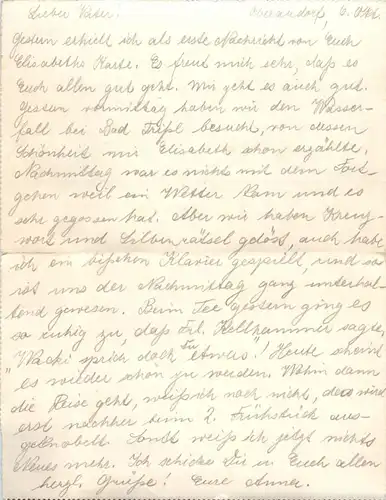 Lieber Vater! Oberaudorf, 6.
Gestern erhielt ich als erste Nachricht von Euch
Elisabeths Karte. Es freut mich sehr, daß es
Euch allen gut geht. Mir geht es auch gut.
Gestern vormittag haben wir den Wasser-
fall bei Bad besucht, von dessen
Schönheit mir Elisabeth schon erzählte.
Nachmittag war es nichts mit dem Fort-
gehen weil ein Wetter kam und es
sehr gegossen hat. Aber wir haben Kreuz-
wort und Silbenrätsel gelöst, auch habe
ich ein bißchen Klavier gespielt, und so
ist uns der Nachmittag ganz unterhal-
tend gewesen. Beim Tee gestern ging es
so ruhig zu, daß Frl. Kellhammer sagte,
"Wacki sprich doch Du etwas"! Heute scheint
es wieder schön zu werden. Wohin dann
die Reise geht, weiß ich noch nicht, das wird
erst nachher beim 2. Frühstück aus-
geknobelt. Sonst weiß ich jetzt nichts
Neues mehr. Ich schicke Dir u. Euch allen
herzl. Grüße! Eure Anne.